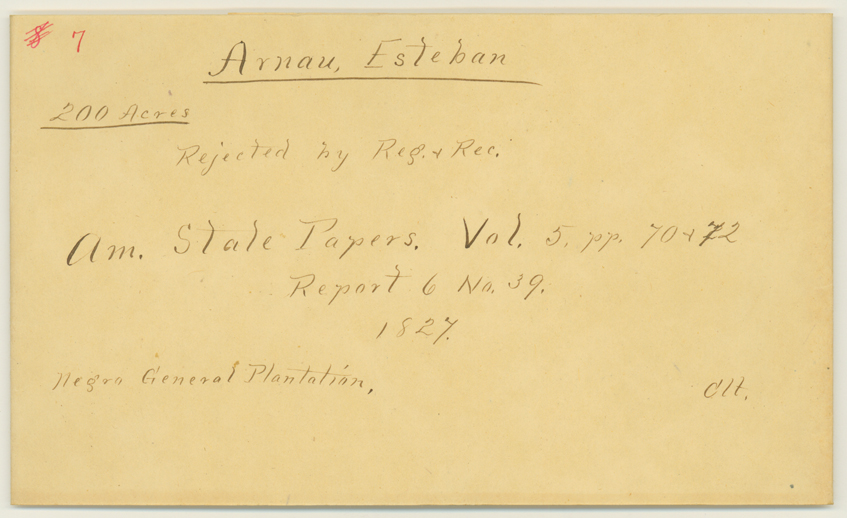 8 7
Arnau, Esteban
200 Acres
Rejected by Reg. & Rec.
Am. State Papers. Vol. 5, pp. 70 & 72
Report 6 No. 39.
1827.
Negro General Plantation,